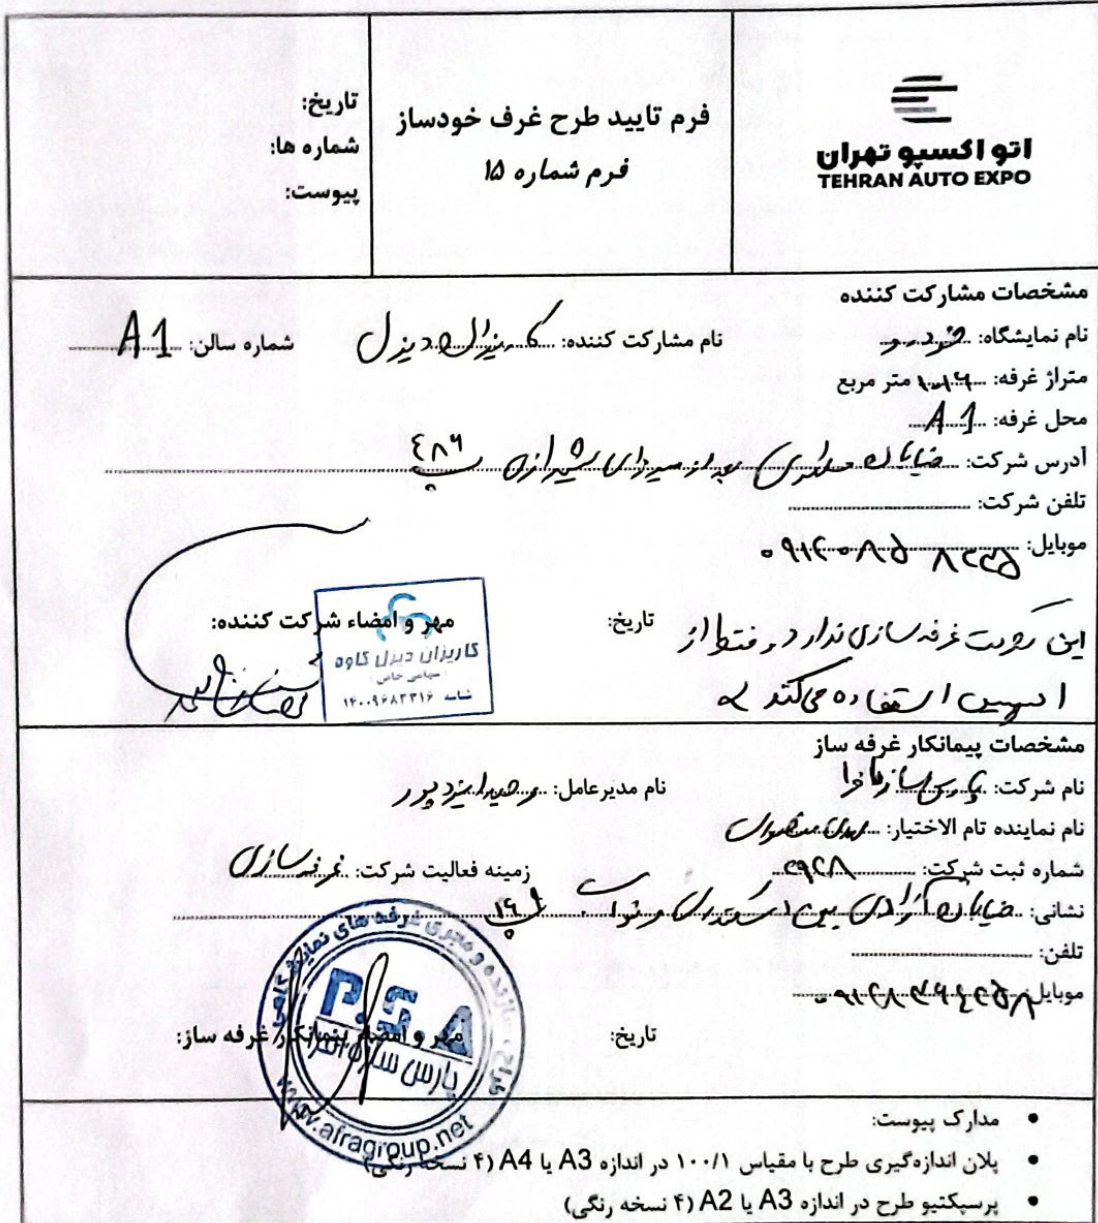 اتو اکسپو تهران
TEHRAN AUTO EXPO
فرم تایید طرح غرف خودساز
فرم شماره ۱۵
تاریخ:
شماره ها:
پیوست:
مشخصات مشارکت کننده
نام نمایشگاه: خودرو نام مشارکت کننده: دیزل شماره سالن: A1
متراژ غرفه: متر مربع
محل غرفه: A1
آدرس شرکت: خیابان بعد از میرزای شیرازی پ ٤٨٦
تلفن شرکت:
موبایل:
این شرکت غرفه سازی ندارد و فقط از تاریخ: مهر و امضاء شرکت کننده:
اسپیس استفاده میکند
کاریزان دیزل کاوه
سهامی خاص
شناسه ۱۴۰۰۹۶۸۳۳۱۶
مشخصات پیمانکار غرفه ساز
نام شرکت: پارس سازه افرا نام مدیرعامل: وحید ایزدپور
نام نماینده تام الاختیار:
شماره ثبت شرکت: زمینه فعالیت شرکت: غرفه سازی
نشانی: خیابان آزادی بین اسکندری و نواب
تلفن:
موبایل:
تاریخ: مهر و امضاء پیمانکار/غرفه ساز:
سازنده و مجری غرفه های نمایشگاهی
P.S.A
پارس سازه افرا
www.afragroup.net
• مدارک پیوست:
• پلان اندازه‌گیری طرح با مقیاس ۱۰۰/۱ در اندازه A3 یا A4 (۴ نسخه رنگی)
• پرسپکتیو طرح در اندازه A3 یا A2 (۴ نسخه رنگی)